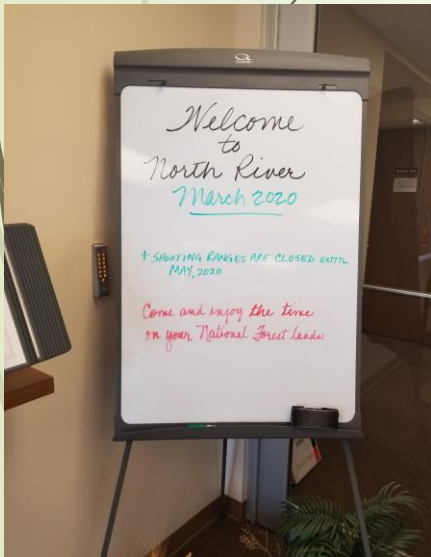 Welcome
to
North River
March 2020
+ SHOOTING RANGES ARE CLOSED UNTIL
MAY, 2020
Come and enjoy the time
on your National Forest lands